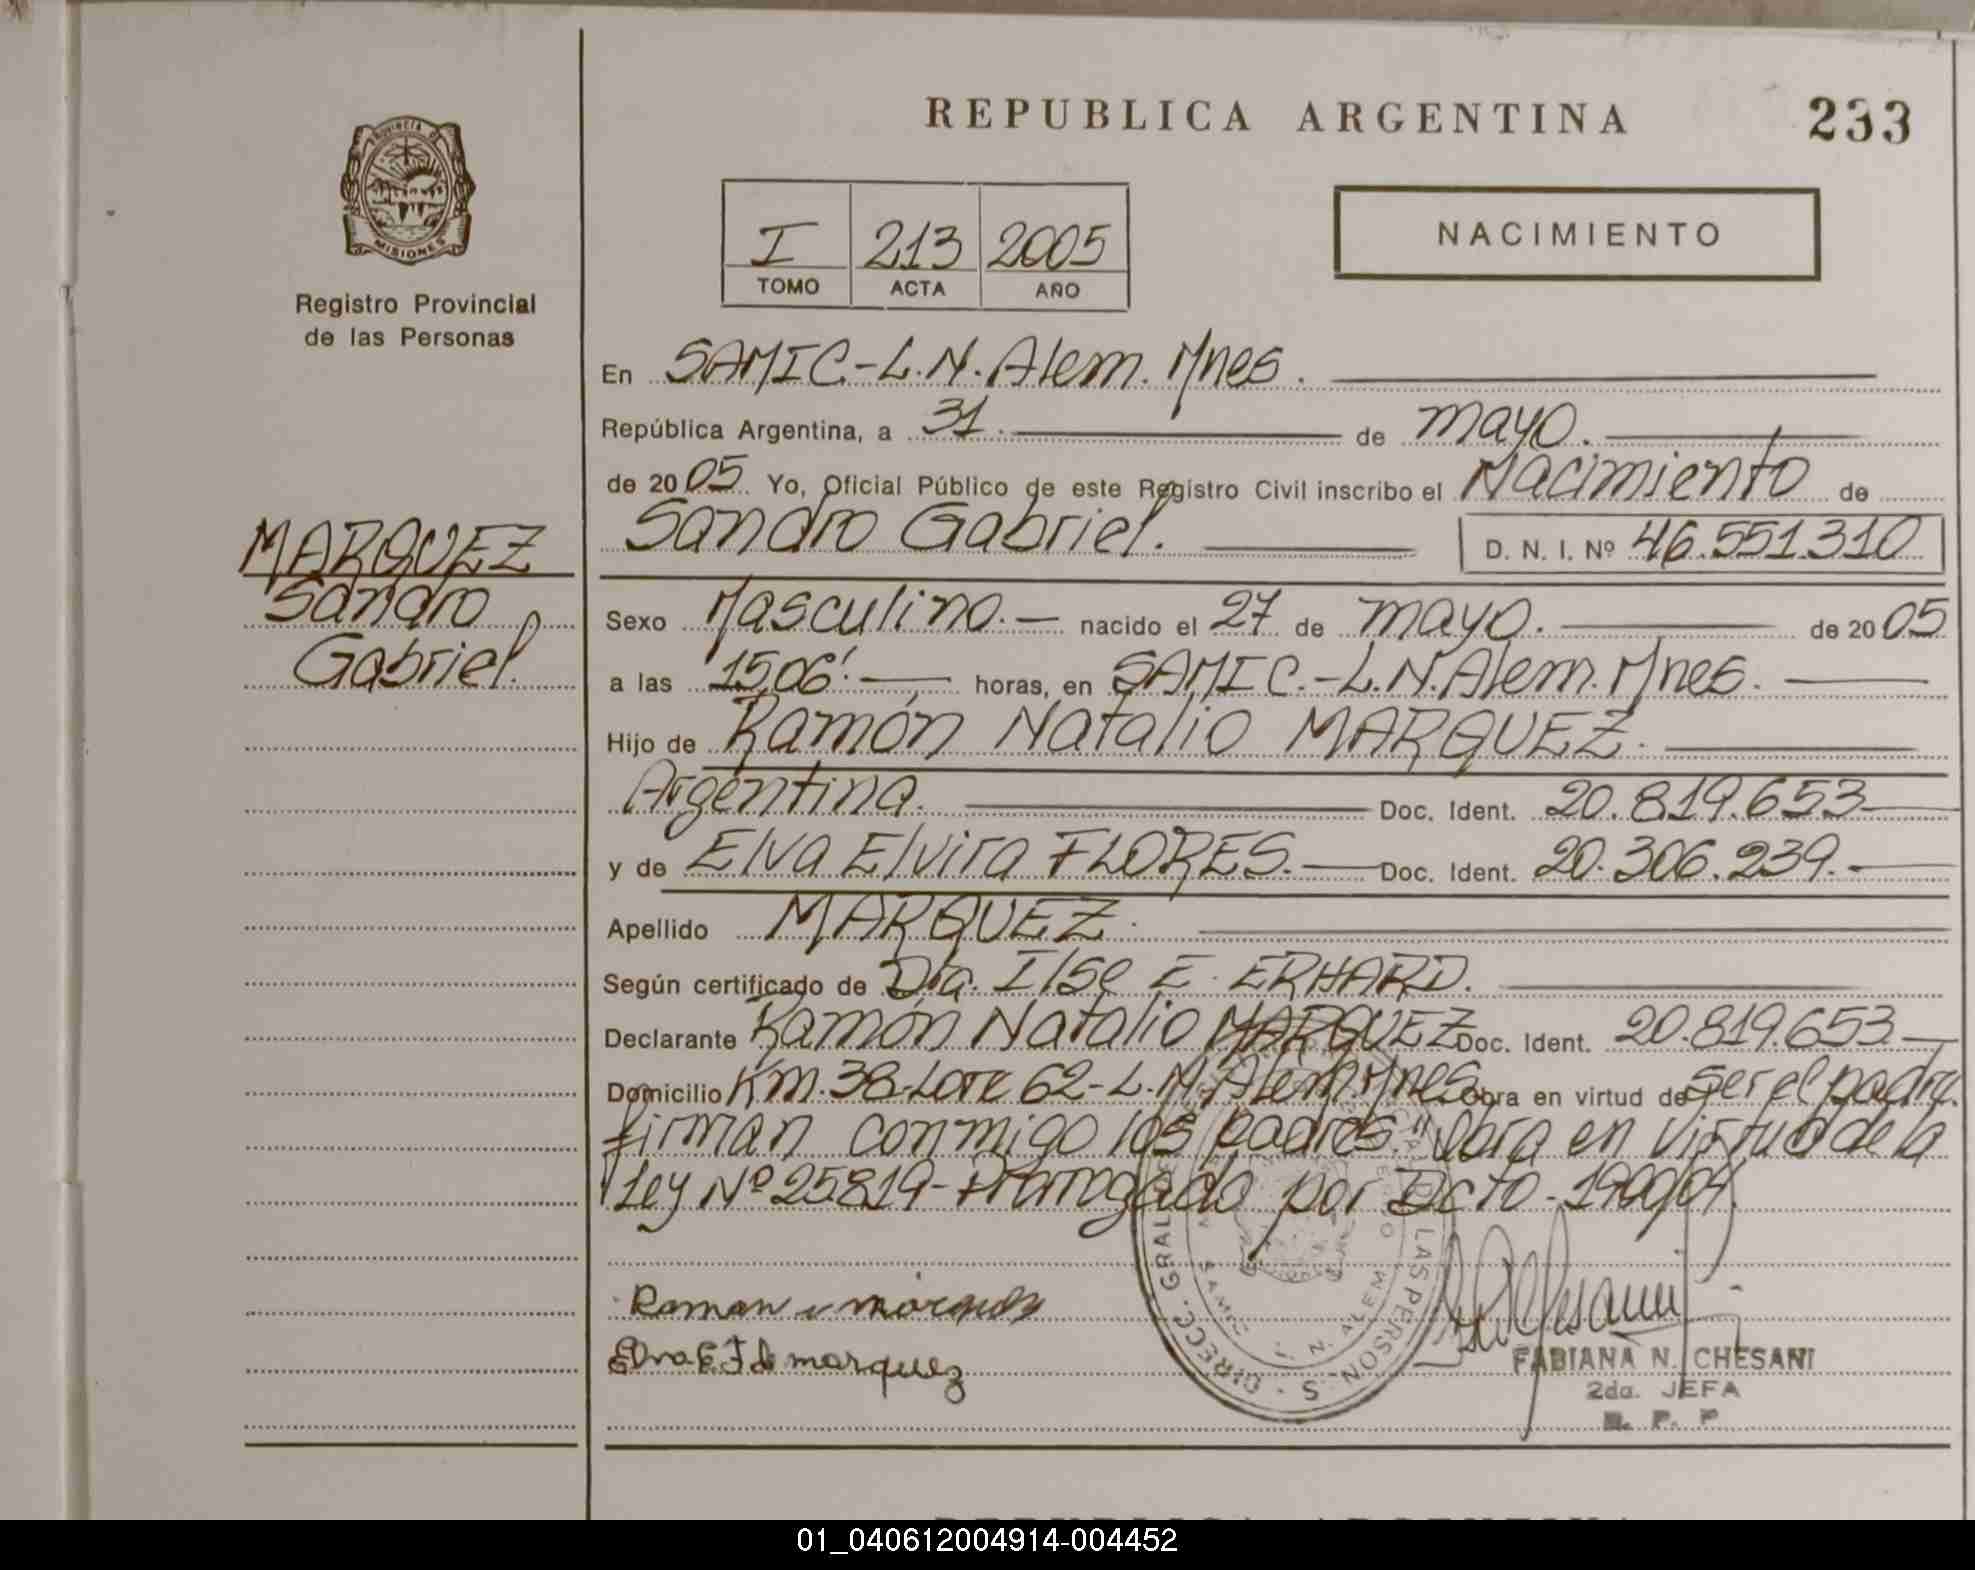 REPUBLICA ARGENTINA
233
PROVINCIA DE
MISIONES
Registro Provincial
de las Personas
I 213 2005
TOMO ACTA AÑO
NACIMIENTO
En SAMIC.-L.N.Alem. Mnes.
República Argentina, a 31. de mayo.
de 2005. Yo, Oficial Público de este Registro Civil inscribo el Nacimiento de
Sandro Gabriel. D. N. I. Nº 46.551.310
MARQUEZ
Sandro
Gabriel.
Sexo Masculino.- nacido el 27 de mayo. de 2005
a las 15,06'.- horas, en SAMIC.-L.N.Alem. Mnes.
Hijo de Ramón Natalio MARQUEZ.
Argentina. Doc. Ident. 20.819.653
y de Elva Elvira FLORES. Doc. Ident. 20.306.239.-
Apellido MARQUEZ.
Según certificado de Dra. Ilse E. ERHARD.
Declarante Ramón Natalio MARQUEZ Doc. Ident. 20.819.653
Domicilio Km.38-Lote 62-L.N.Alem.Mnes. Obra en virtud de ser el padre.
firman conmigo los padres. Obra en virtud de la
Ley Nº 25819- Prorrogado por Dcto-1900/04.
Elva E F de marquez
DIRECC. GRAL. LAS PERSONAS
SAMIC L. N. ALEM
FABIANA N. CHESANI
2da. JEFA
R. P. P
01_040612004914-004452